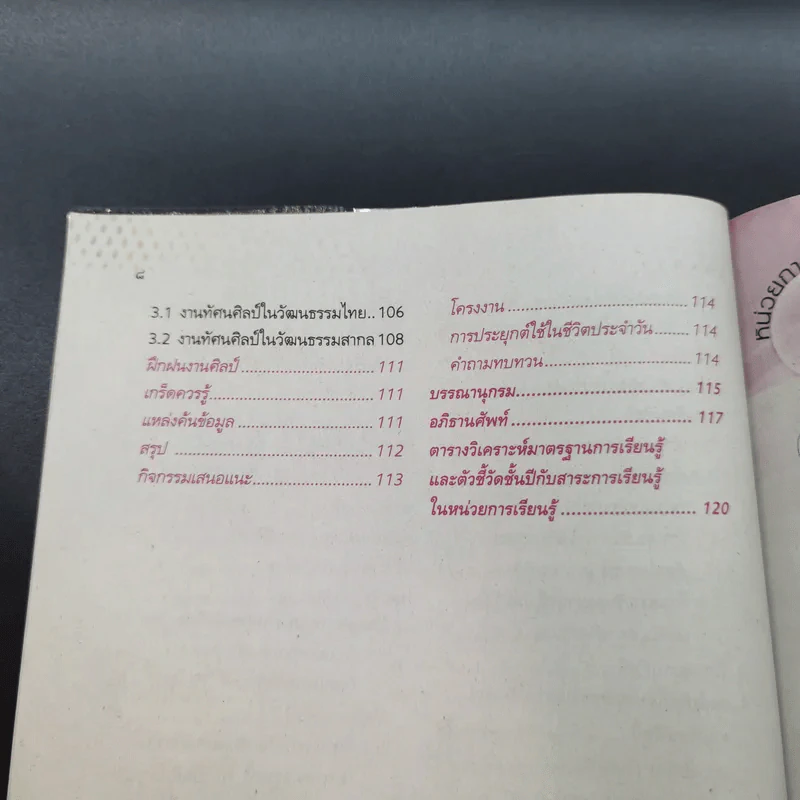 ๘
3.1 งานทัศนศิลป์ในวัฒนธรรมไทย.. 106
3.2 งานทัศนศิลป์ในวัฒนธรรมสากล 108
ฝึกฝนงานศิลป์........................ 111
เกร็ดควรรู้................................ 111
แหล่งค้นข้อมูล........................ 111
สรุป .................................... 112
กิจกรรมเสนอแนะ..................... 113
โครงงาน................................ 114
การประยุกต์ใช้ในชีวิตประจำวัน....... 114
คำถามทบทวน......................... 114
บรรณานุกรม............................ 115
อภิธานศัพท์............................ 117
ตารางวิเคราะห์มาตรฐานการเรียนรู้
และตัวชี้วัดชั้นปีกับสาระการเรียนรู้
ในหน่วยการเรียนรู้........................ 120
หน่วยกา